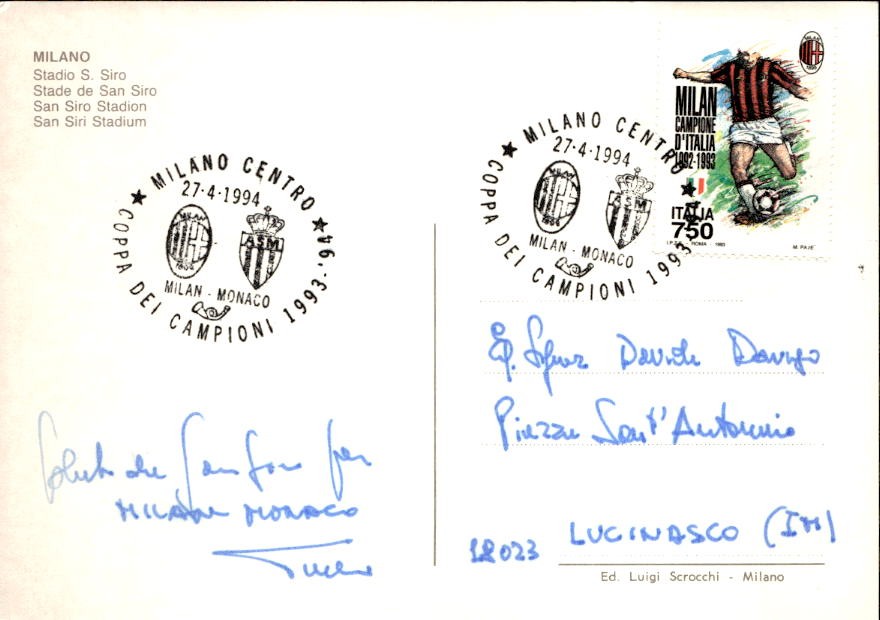 MILANO
Stadio S. Siro
Stade de San Siro
San Siro Stadion
San Siri Stadium
MILANO CENTRO
27-4-1994
MILAN
1899
A S M
MILAN - MONACO
COPPA DEI CAMPIONI 1993-'94
MILANO CENTRO
27-4-1994
MILAN
1899
MILAN - MONACO
COPPA DEI CAMPIONI 1993-'94
MILAN
1899
MILAN
CAMPIONE
D'ITALIA
1992-1993
ITALIA
750
ROMA
M. PAJÈ
Saluti da San Siro per
MILAN MONACO
Eg. Signor Davide
Piazza Sant'Antonio
18023 LUCINASCO (IM)
Ed. Luigi Scrocchi - Milano